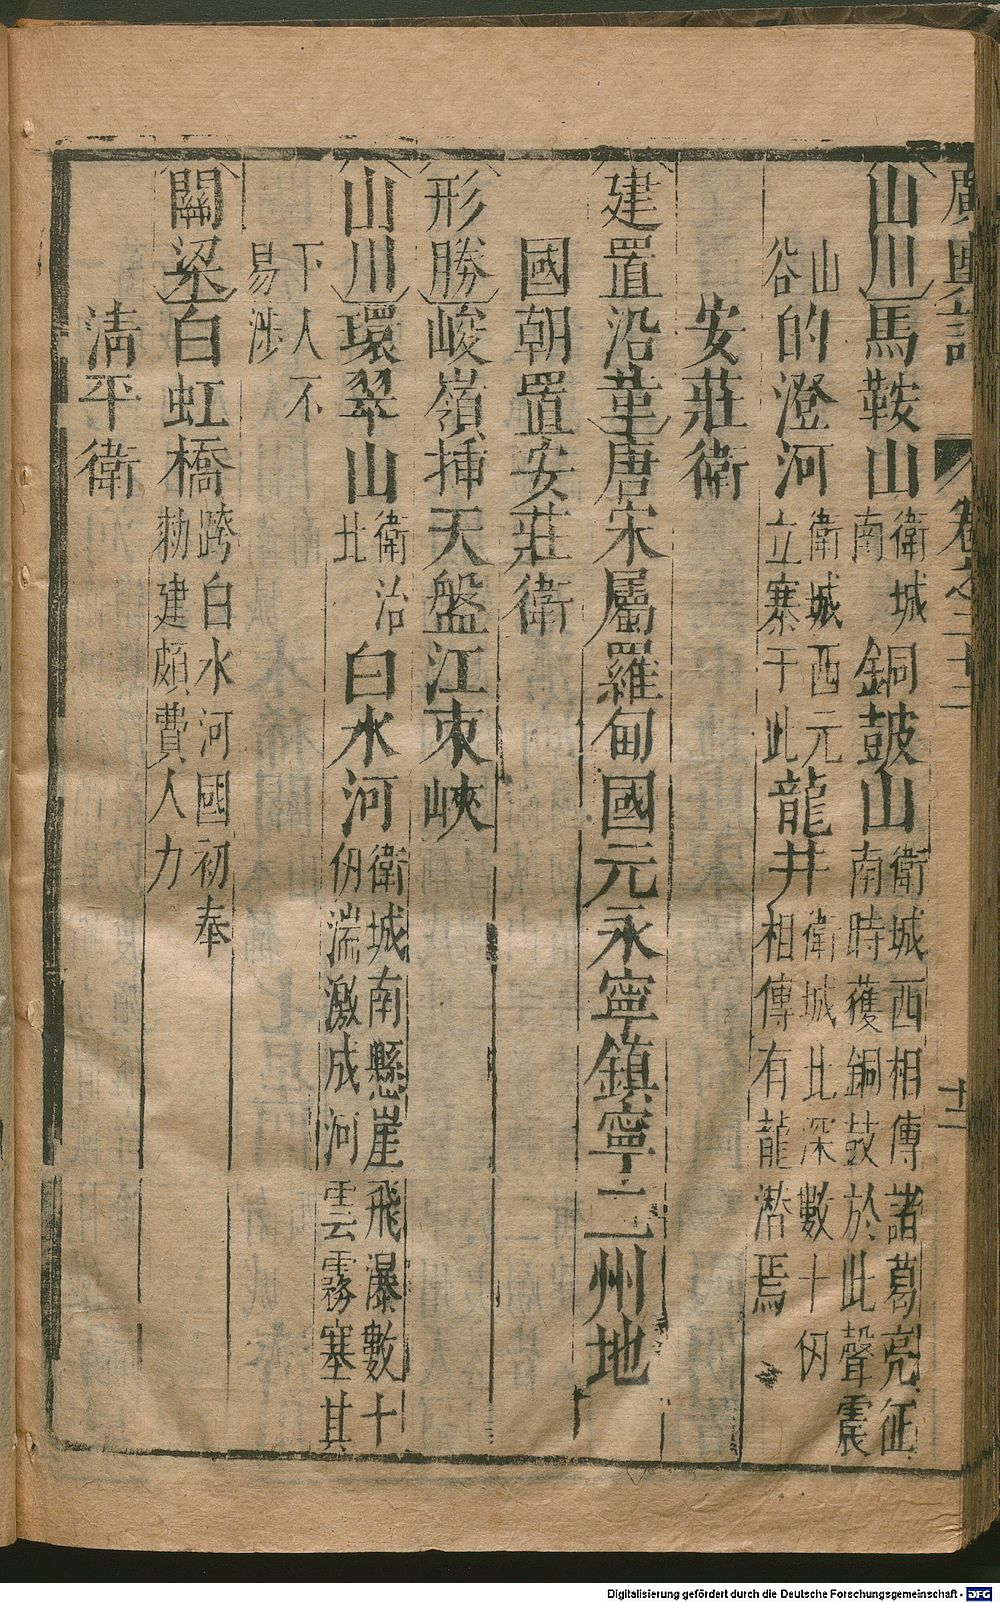 廣輿記 卷之二十二 十二
山川馬鞍山衛城南銅鼓山衛城西相傳諸葛亮征南時獲銅鼓於此聲震
山谷的澄河衛城西元立寨于此龍井衛城北深數十仞相傳有龍潛焉
安莊衛
建置沿革唐宋屬羅甸國元永寧鎮寧二州地
國朝置安莊衛
形勝峻嶺挿天盤江束峽
山川環翠山衛治北白水河衛城南懸崖飛瀑數十仞湍激成河雲霧塞其
下人不易涉
關梁白虹橋跨白水河國初奉勑建頗費人力
清平衛
Digitalisierung gefördert durch die Deutsche Forschungsgemeinschaft - DFG